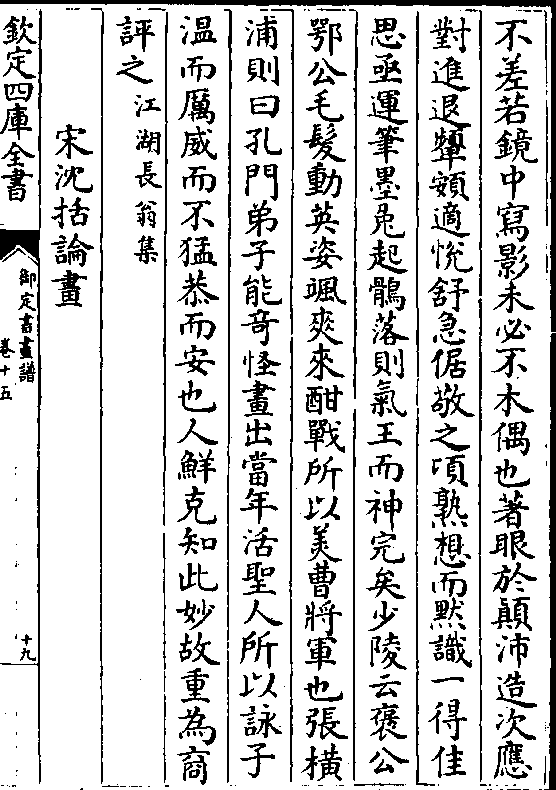 不差若鏡中寫影未必不木偶也著眼於顛沛造次應
對進退顰頞適悅舒急倨敬之頃熟想而默識一得佳
思亟運筆墨兎起鶻落則氣王而神完矣少陵云褒公
鄂公毛髮動英姿颯爽來酣戰所以美曹將軍也張橫
浦則曰孔門弟子能竒怪畫出當年活聖人所以詠子
温而厲威而不猛恭而安也人鮮克知此妙故重為商
評之江湖長翁集
宋沈括論畫
欽定四庫全書
御定書畫譜
卷十五
十九